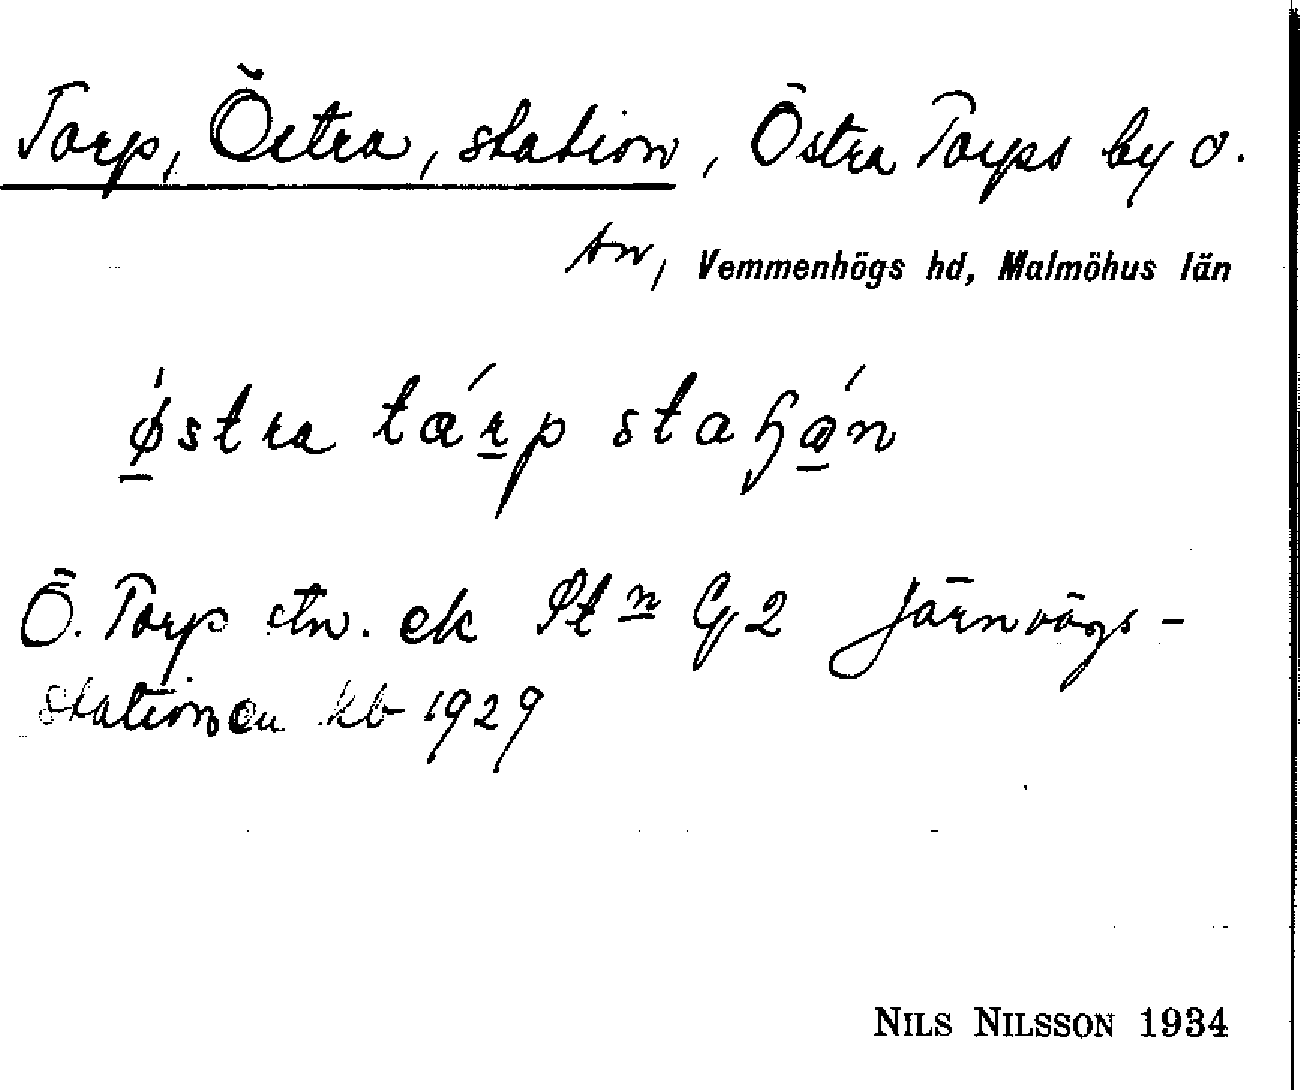 Torp, Östra, station, Östra Torps by o.
sn, Vemmenhögs hd, Malmöhus län
østra tárp staɧán
Ö. Torp stn. ek Stn G2 Järnvägs-
stationen kb 1929
NILS NILSSON 1934